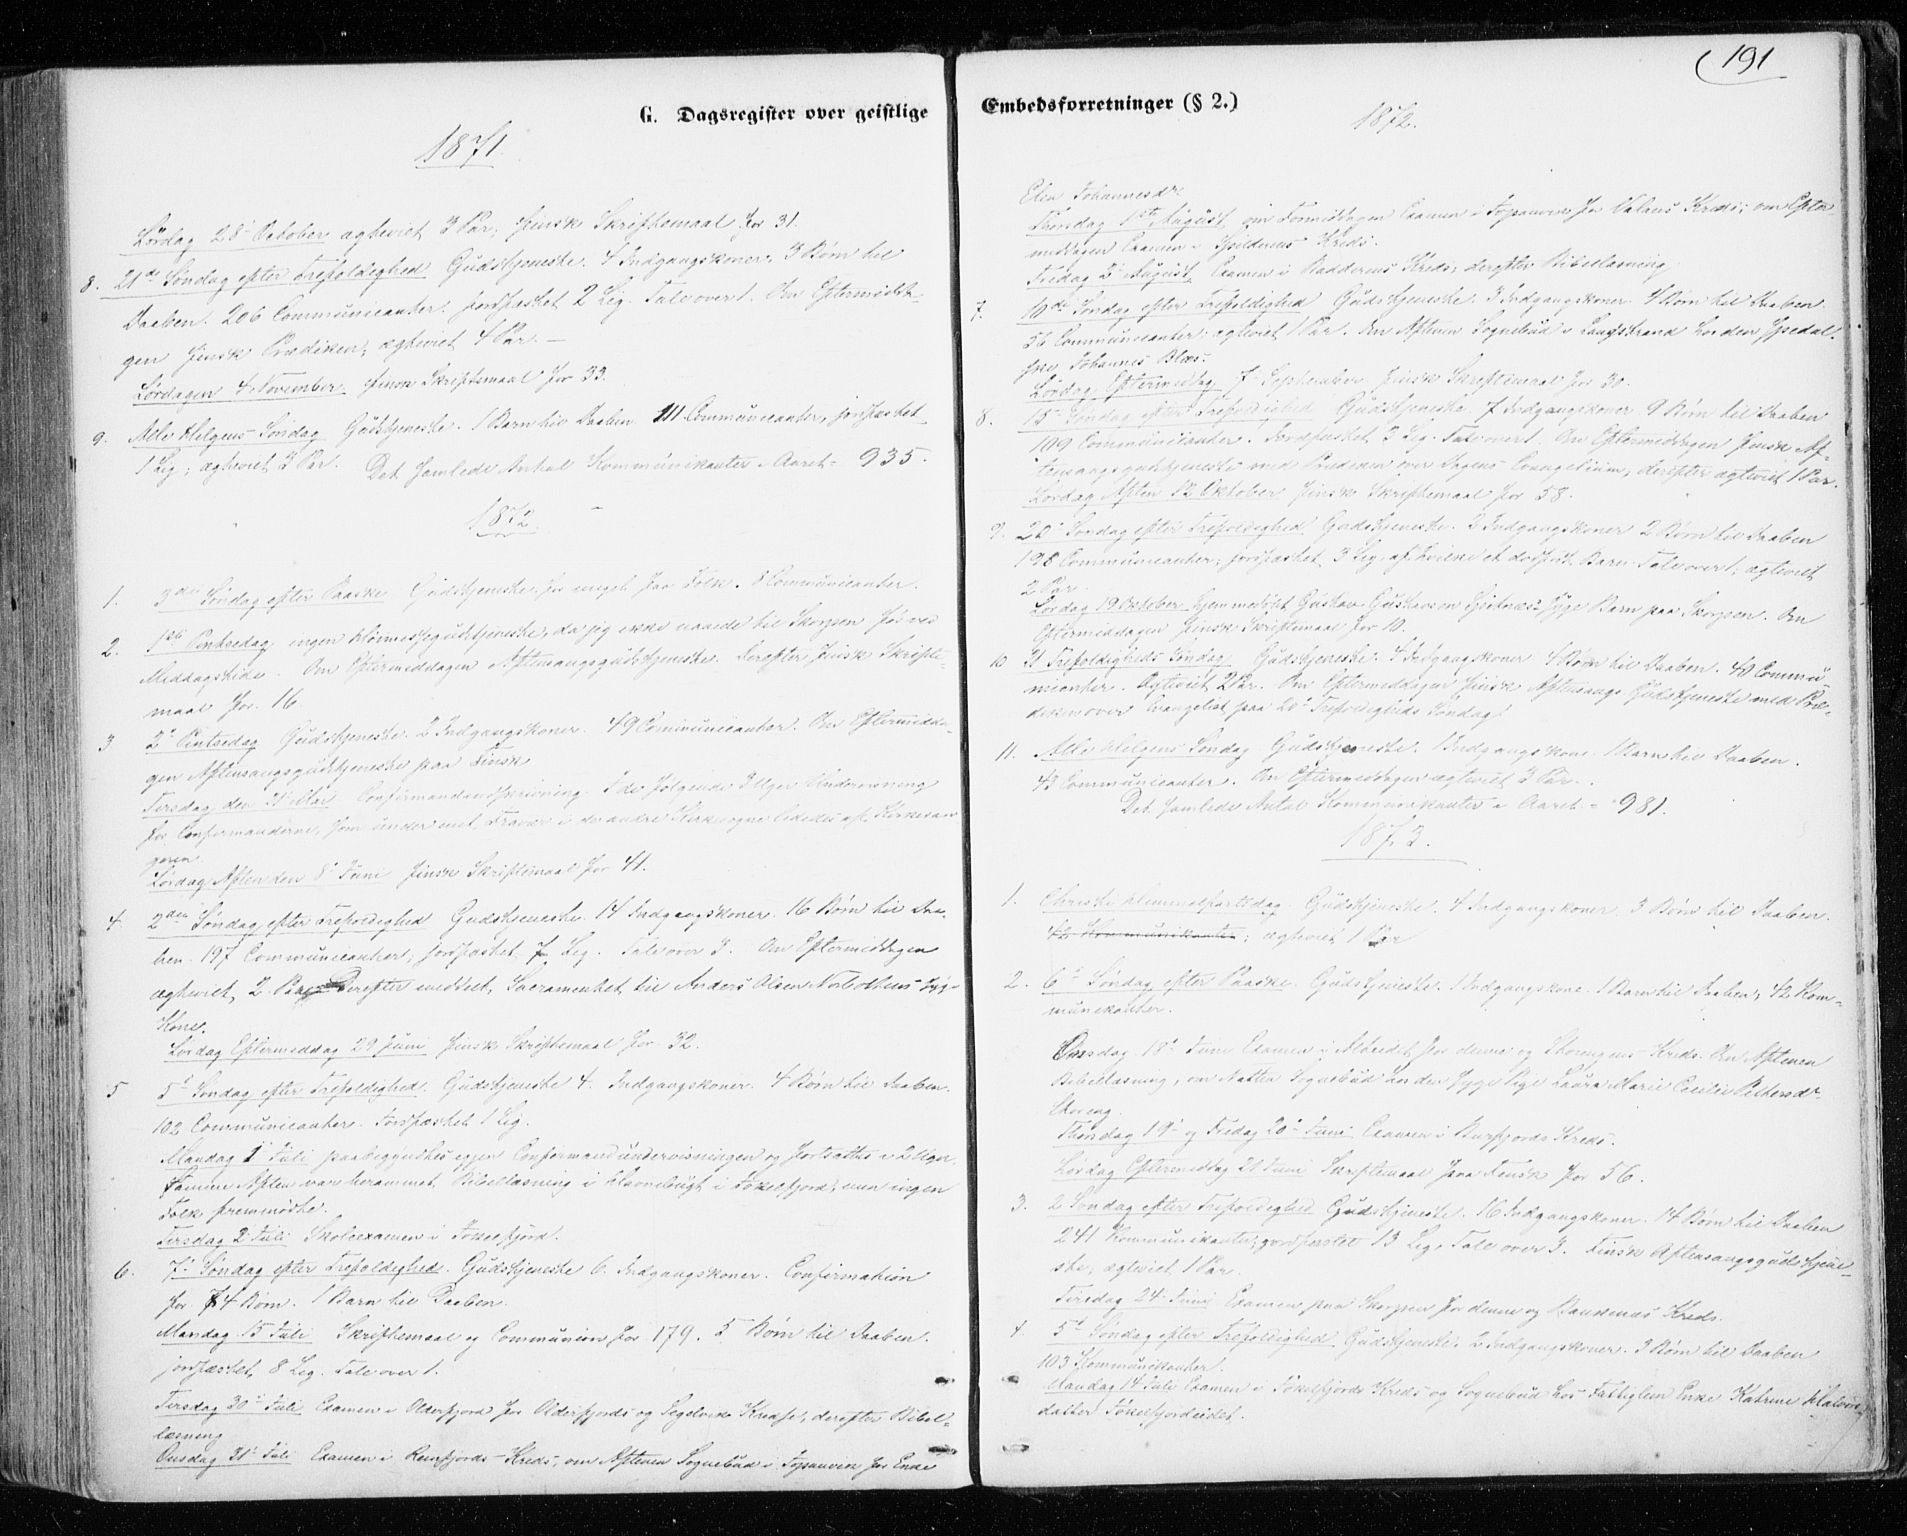 G. Dagsregister over geistlige
1871.
Lördag 28 October ægteviet 3 Par, finsk Skriftemaal for 31.
8. 21de Søndag efter Trefoldighed Gudstjeneste. 4 Indgangskoner. 3 Børn til
Daaben. 206 Communicanter. jordfæstet 2 Lig. Tale over 1. Om Eftermidda-
gen finsk Prædiken, ægteviet 4 Par. –
Lørdagen 4 November finsk Skriftemaal for 33.
9. Alle Helgens Søndag Gudstjeneste. 1 Barn til Daaben 111 Communicanter, jordfæstet
1 Lig; ægteviet 3 Par. Det samlede Antal Kommunikanter i Aaret = 935.
1872.
1. 3die Søndag efter Paaske Gudstjeneste for meget faa Folk. 8 Communicanter.
2. 1ste Pintsedag ingen Høimessegudstjeneste, da jeg ikke naaede til Skorpen før ved
Middagstider. Om Eftermiddagen Aftensangsgudstjeneste. Derefter finsk Skrifte-
maal for 16
3 2d Pintsedag Gudstjeneste. 2 Indgangskoner. 49 Communicanter. Om Eftermidda-
gen Aftensangsgudstjeneste paa Finsk
Tirsdag den 21 Mai Confirmandindskrivning. I de følgende Uger Underviisning
for Confirmanderne, som under mit Fravær i de andre Kirkesogne lededes af Kirkesan-
geren.
Lördag Aften den 8 Juni finsk Skriftemaal for 41.
4 2den Søndag efter Trefoldighed Gudstjeneste. 14 Indgangskoner. 16 Børn til Daa-
ben. 197 Communicanter, jordfæstet 7 Lig. Tale over 3. Om Eftermiddagen
ægteviet 2 Par Derefter meddelt Sacramentet til Anders Olsen syg
Kone.
Lørdag Eftermiddag 29 Juni finsk Skriftemaal for 32.
5 5d Søndag efter Trefoldighed. Gudstjeneste 4. Indgangskoner. 4 Børn til Daaben.
102 Communicanter. Jordfæstet 1 Lig.
Mandag 1 Juli paabegyndtes igjen Confirmandundervisningen og fortsattes i 2 Uger.
Samme Aften var berammet Bibellæsning i Havnebugt i Jøkelfjord, men ingen
Folk fremmødte.
Tirsdag 2 Juli Skoleexamen i Jøkelfjord.
6. 7d Søndag efter Trefoldighed. Gudstjeneste 6. Indgangskoner. Confirmation
for 74 Børn. 1 Barn til Daaben.
Mandag 15 Juli Skriftemaal og Communion for 179. 5 Børn til Daaben.
jordfæstet 8 Lig. Tale over 1.
Tirsdag 30 Juli Examen i Olderfjord for Olderfjords og Segelviks Kredse, derefter Bibel-
læsning
Onsdag 31 Juli Examen i Reinfjords Kreds, om Aftenen Sognebud i for Enke
191
Embedsforretninger (§ 2.)
1872.
Elen Johannesdr
Thorsdag 1ste August om Formiddagen Examen i for Kreds; om Efter
middagen Examen i Spildrens Kreds.
Fredag 2 August Examen i Badderens Kreds, derefter Bibellæsning
7. 10de Søndag efter Trefoldighed Gudstjeneste. 3 Indgangskoner. 4 Børn til Daaben.
36 Communicanter, ægteviet 1 Par. Om Aftenen Sognebud i Langstrand hos den spedal-
ske Johannes
Lørdag Eftermiddag 7 September finsk Skriftemaal for 30.
8. 15 Søndag efter Trefoldighed Gudstjeneste. 7 Indgangskoner 9 Børn til Daaben
109 Communicanter. Jordfæstet 3 Lig. Tale over 1. Om Eftermiddagen finsk Af-
tensangsgudstjeneste med Prædiken over Dagens Evangelium, derefter ægteviet 1 Par.
Lørdag Aften 12 Oktober finsk Skriftemaal for 58.
9. 20d Søndag efter Trefoldighed Gudstjeneste. 2 Indgangskoner 2 Børn til Daaben
198 Communicanter, jordfæstet 3 Lig, af hvilke et dødfødt Barn. Tale over 1, ægteviet
2 Par.
Lørdag 19 Oktober hjemmedøbt Gustav Gustavsen syge Barn paa Skorpen. Om
Eftermiddagen finsk Skriftemaal for 10.
10 21 Trefoldigheds Søndag Gudstjeneste. 4 Indgangskoner 4 Børn til Daaben. 40 Commu-
nicanter. Ægteviet 2 Par. Om Eftermiddagen finsk Aftensangs Gudstjeneste med Præ-
diken over Evangeliet paa 20d Trefoldigheds Søndag.
11. Alle Helgens Søndag Gudstjeneste. 1 Indgangskone. 1 Barn til Daaben.
43 Communicanter. Om Eftermiddagen ægteviet 3 Par.
Det samlede Antal Kommunikanter i Aaret = 981.
1873.
1. Christi Himmelfartsdag. Gudstjeneste. 4 Indgangskoner. 3 Børn til Daaben.
42 Kommunikanter; ægteviet 1 Par
2. 6d Søndag efter Paaske. Gudstjeneste. 1 Indgangskone. 1 Barn til Daaben, 42 Kom-
munikanter.
Onsdag 18 Juni Examen i Alteidet for denne og Storengens Kreds. Om Aftenen
Bibellæsning, om Natten Sognebud hos den syge Pige Laura Marie Cecilie Pettersdr
Storeng.
Thorsdag 19 og Fredag 20 Juni Examen i Burfjords Kreds.
Lørdag Eftermiddag 21 Juni Skriftemaal paa Finsk for 56.
3. 2 Søndag efter Trefoldighed Gudstjeneste. 16 Indgangskoner. 14 Børn til Daaben
241 Kommunikanter, jordfæstet 13 Lig, Tale over 3. Finsk Aftensangsgudstjene-
ste, ægteviet 1 Par.
Tirsdag 24 Juni Examen paa Skorpen for denne og Kreds.
4. 5d Søndag efter Trefoldighed Gudstjeneste. 2 Indgangskoner. 3 Børn til Daaben
103 Kommunikanter.
Mandag 14 Juli Examen i Jøkelfjords Kreds og Sognebud hos Fattiglem Enke Katrine Halvors
datter Jøkelfjordeidet.